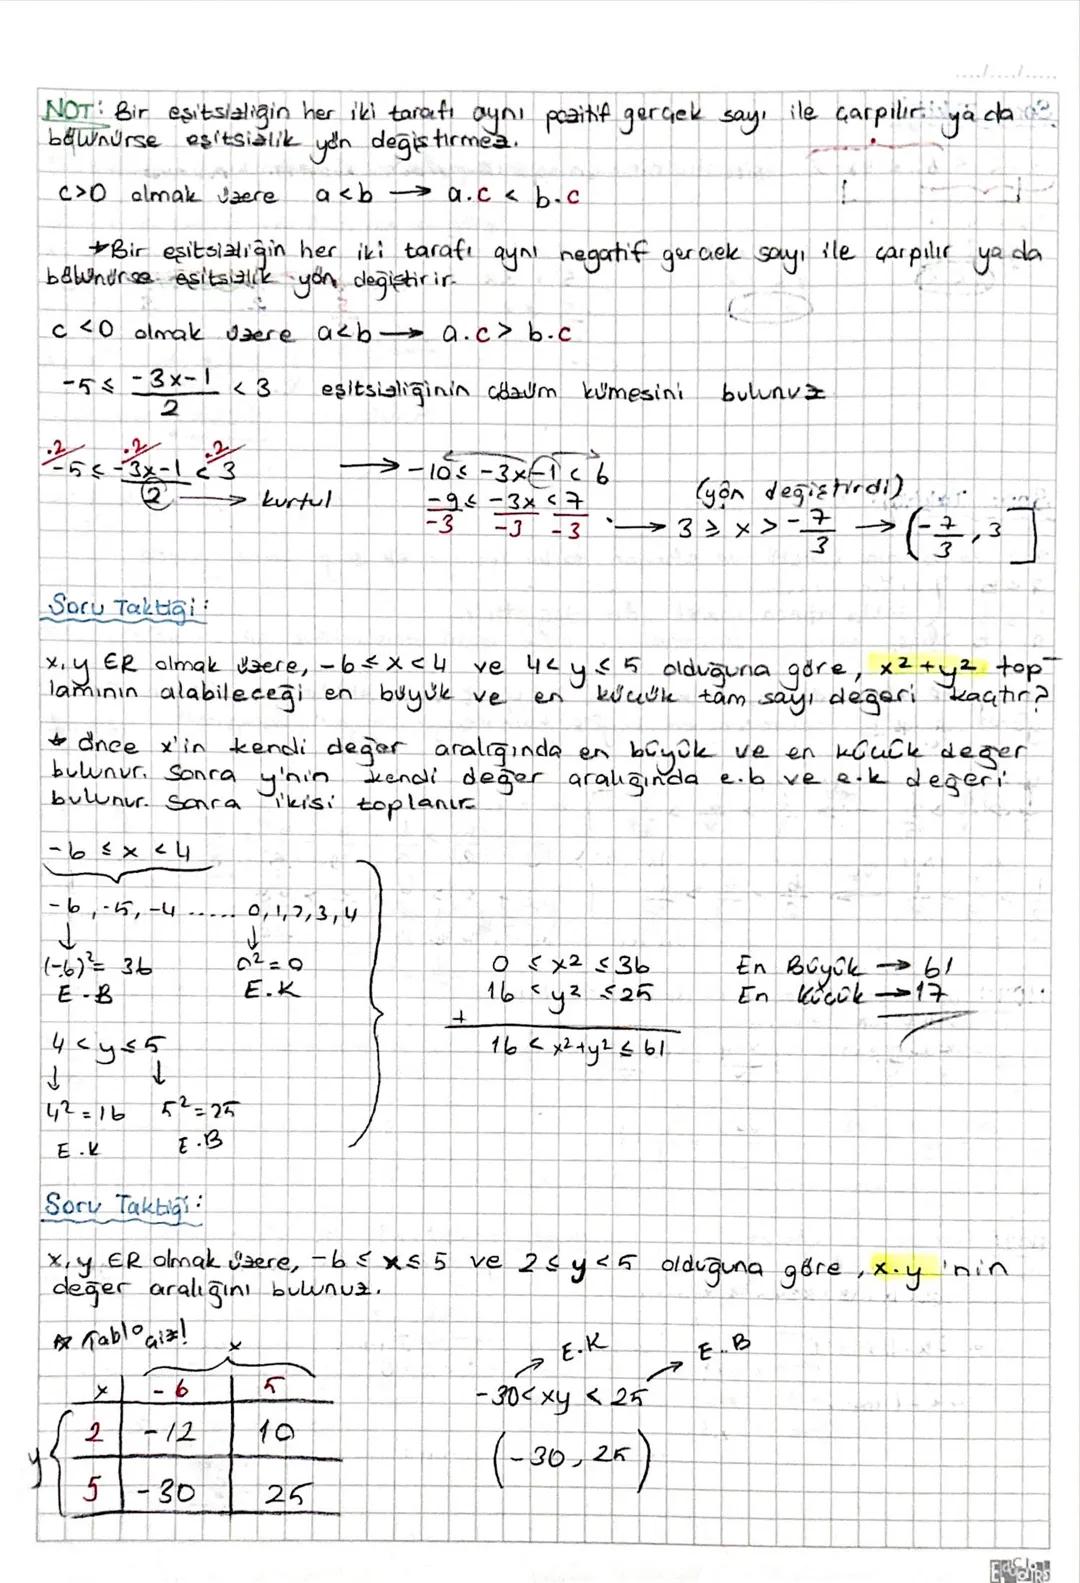 NOT: Bir eşitsizliğin her iki tarafı aynı pozitif gerçek sayı ile çarpılır ya da
bölünürse eşitsizlik yön değiştirmez.
c>0 olmak üzere a<b → a.c < b.c
*Bir eşitsizliğin her iki tarafı aynı negatif gerçek sayı ile çarpılır ya da
bölünürse eşitsizlik yön değiştirir.
c<0 olmak üzere a<b → a.c > b.c
-5 ≤ (-3x-1)/2 < 3 eşitsizliğinin çözüm kümesini bulunuz
.2 .2 .2
-5 ≤ (-3x-1)/2 < 3 → -10 ≤ -3x-1 < 6
2 → kurtul
(yön değiştirdi)
-9/-3 ≤ -3x/-3 < 7/-3 → 3 ≥ x > -7/3 → (-7/3, 3]
Soru Taktiği:
x,y ER olmak üzere, -6 ≤ x < 4 ve 4 < y ≤ 5 olduğuna göre, x²+y² top-
lamının alabileceği en büyük ve en küçük tam sayı değeri kaçtır?
* Önce x'in kendi değer aralığında en büyük ve en küçük değer
bulunur. Sonra y'nin kendi değer aralığında e.b ve e.k değeri
bulunur. Sonra ikisi toplanır.
-6 ≤ x < 4
-6, -5, -4 ..... 0,1,2,3,4
(-6)² = 36 0² = 0
E.B E.K
4 < y ≤ 5
4² = 16 5² = 25
E.K E.B
0 ≤ x² ≤ 36
16 < y² ≤ 25
+
16 < x²+y² ≤ 61
En Büyük → 61
En Küçük → 17
Soru Taktiği:
x,y ER olmak üzere, -6 ≤ x ≤ 5 ve 2 ≤ y < 5 olduğuna göre, x.y'nin
değer aralığını bulunuz.
* Tablo çiz!
x
x -6 5
y
2 -12 10
5 -30 25
E.K E.B
-30 < xy < 25
(-30, 25)